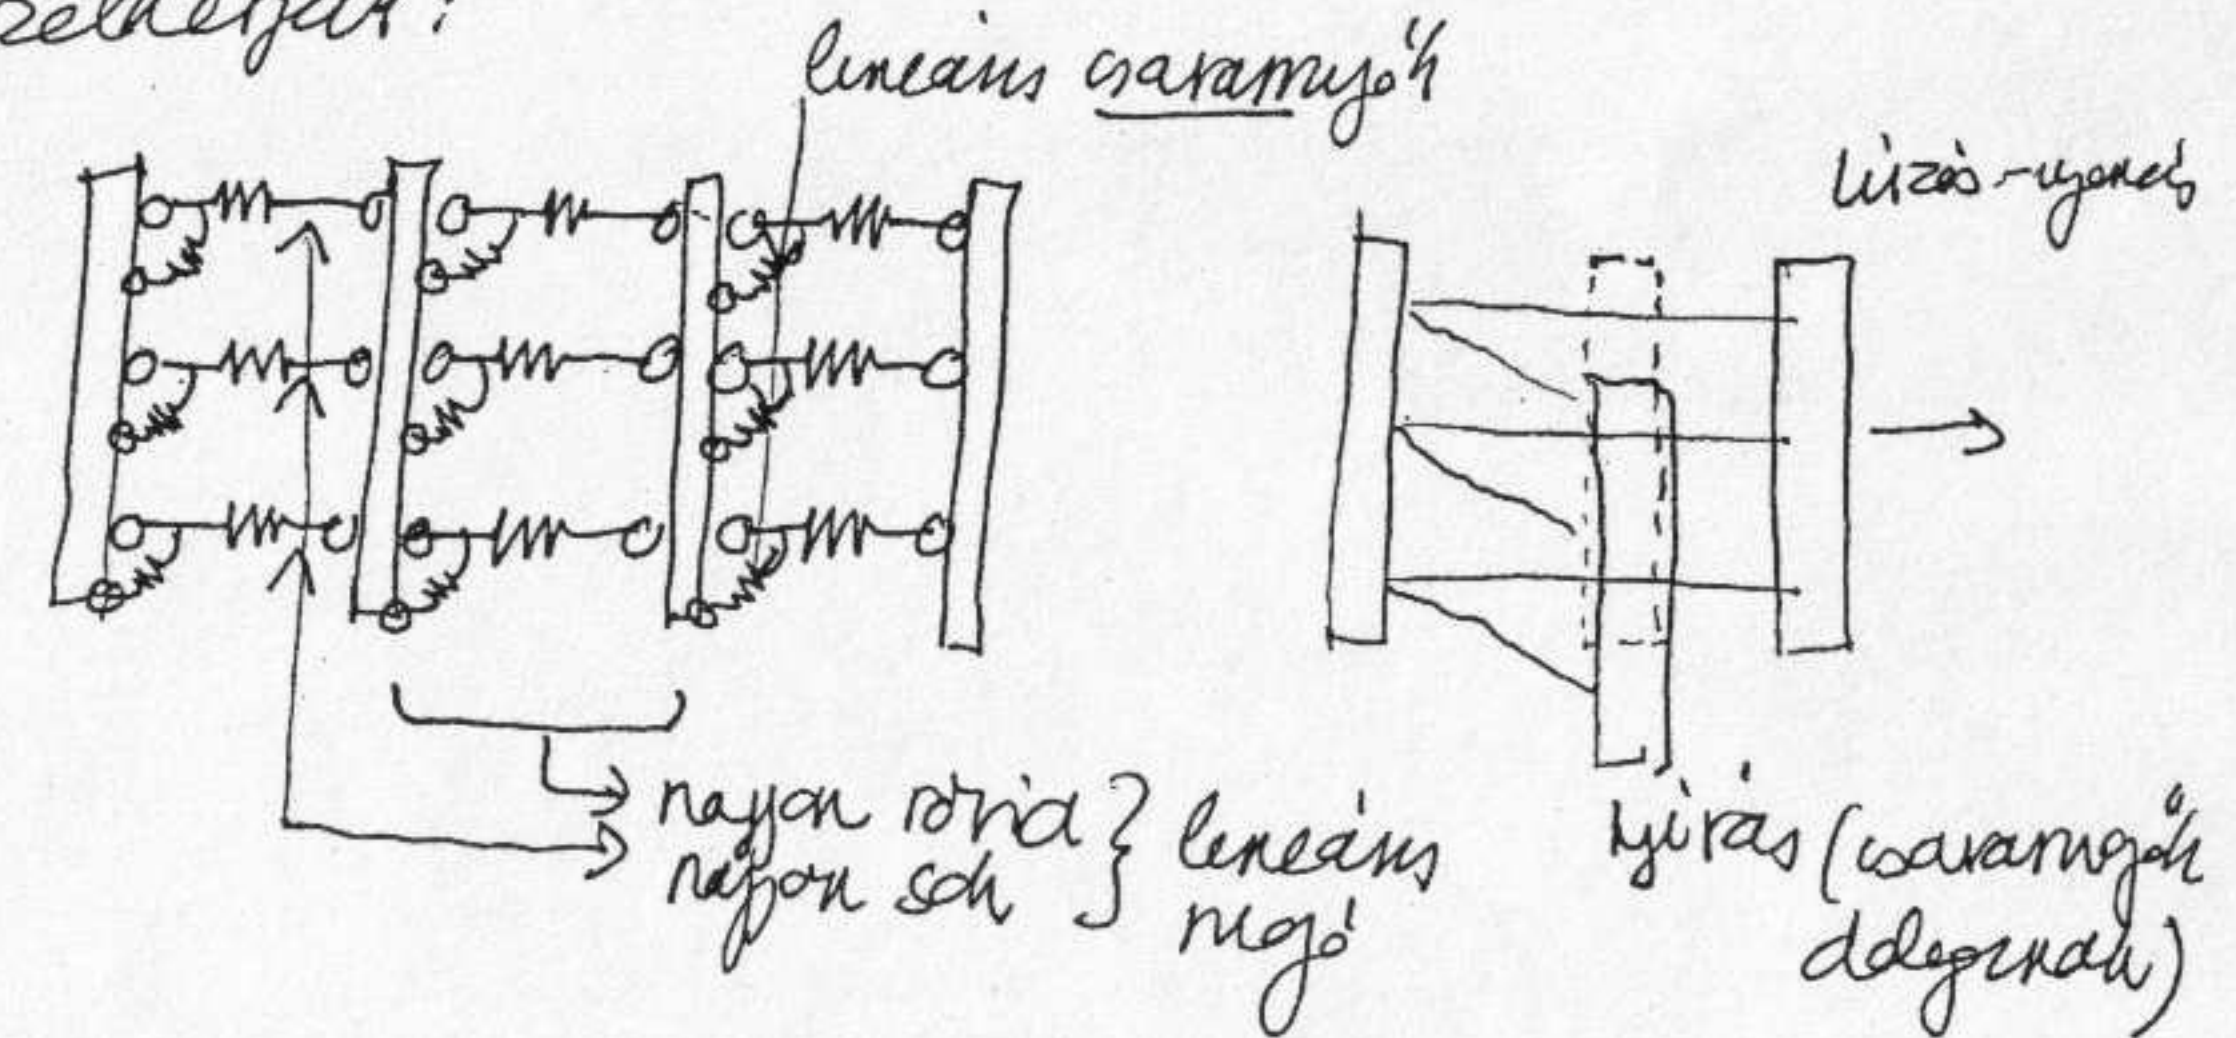 lineáris csavarrugók
húzás-nyomás
nagyon rövid
nagyon sok
lineáris
rugó
nyírás (csavarrugók
dolgoznak)